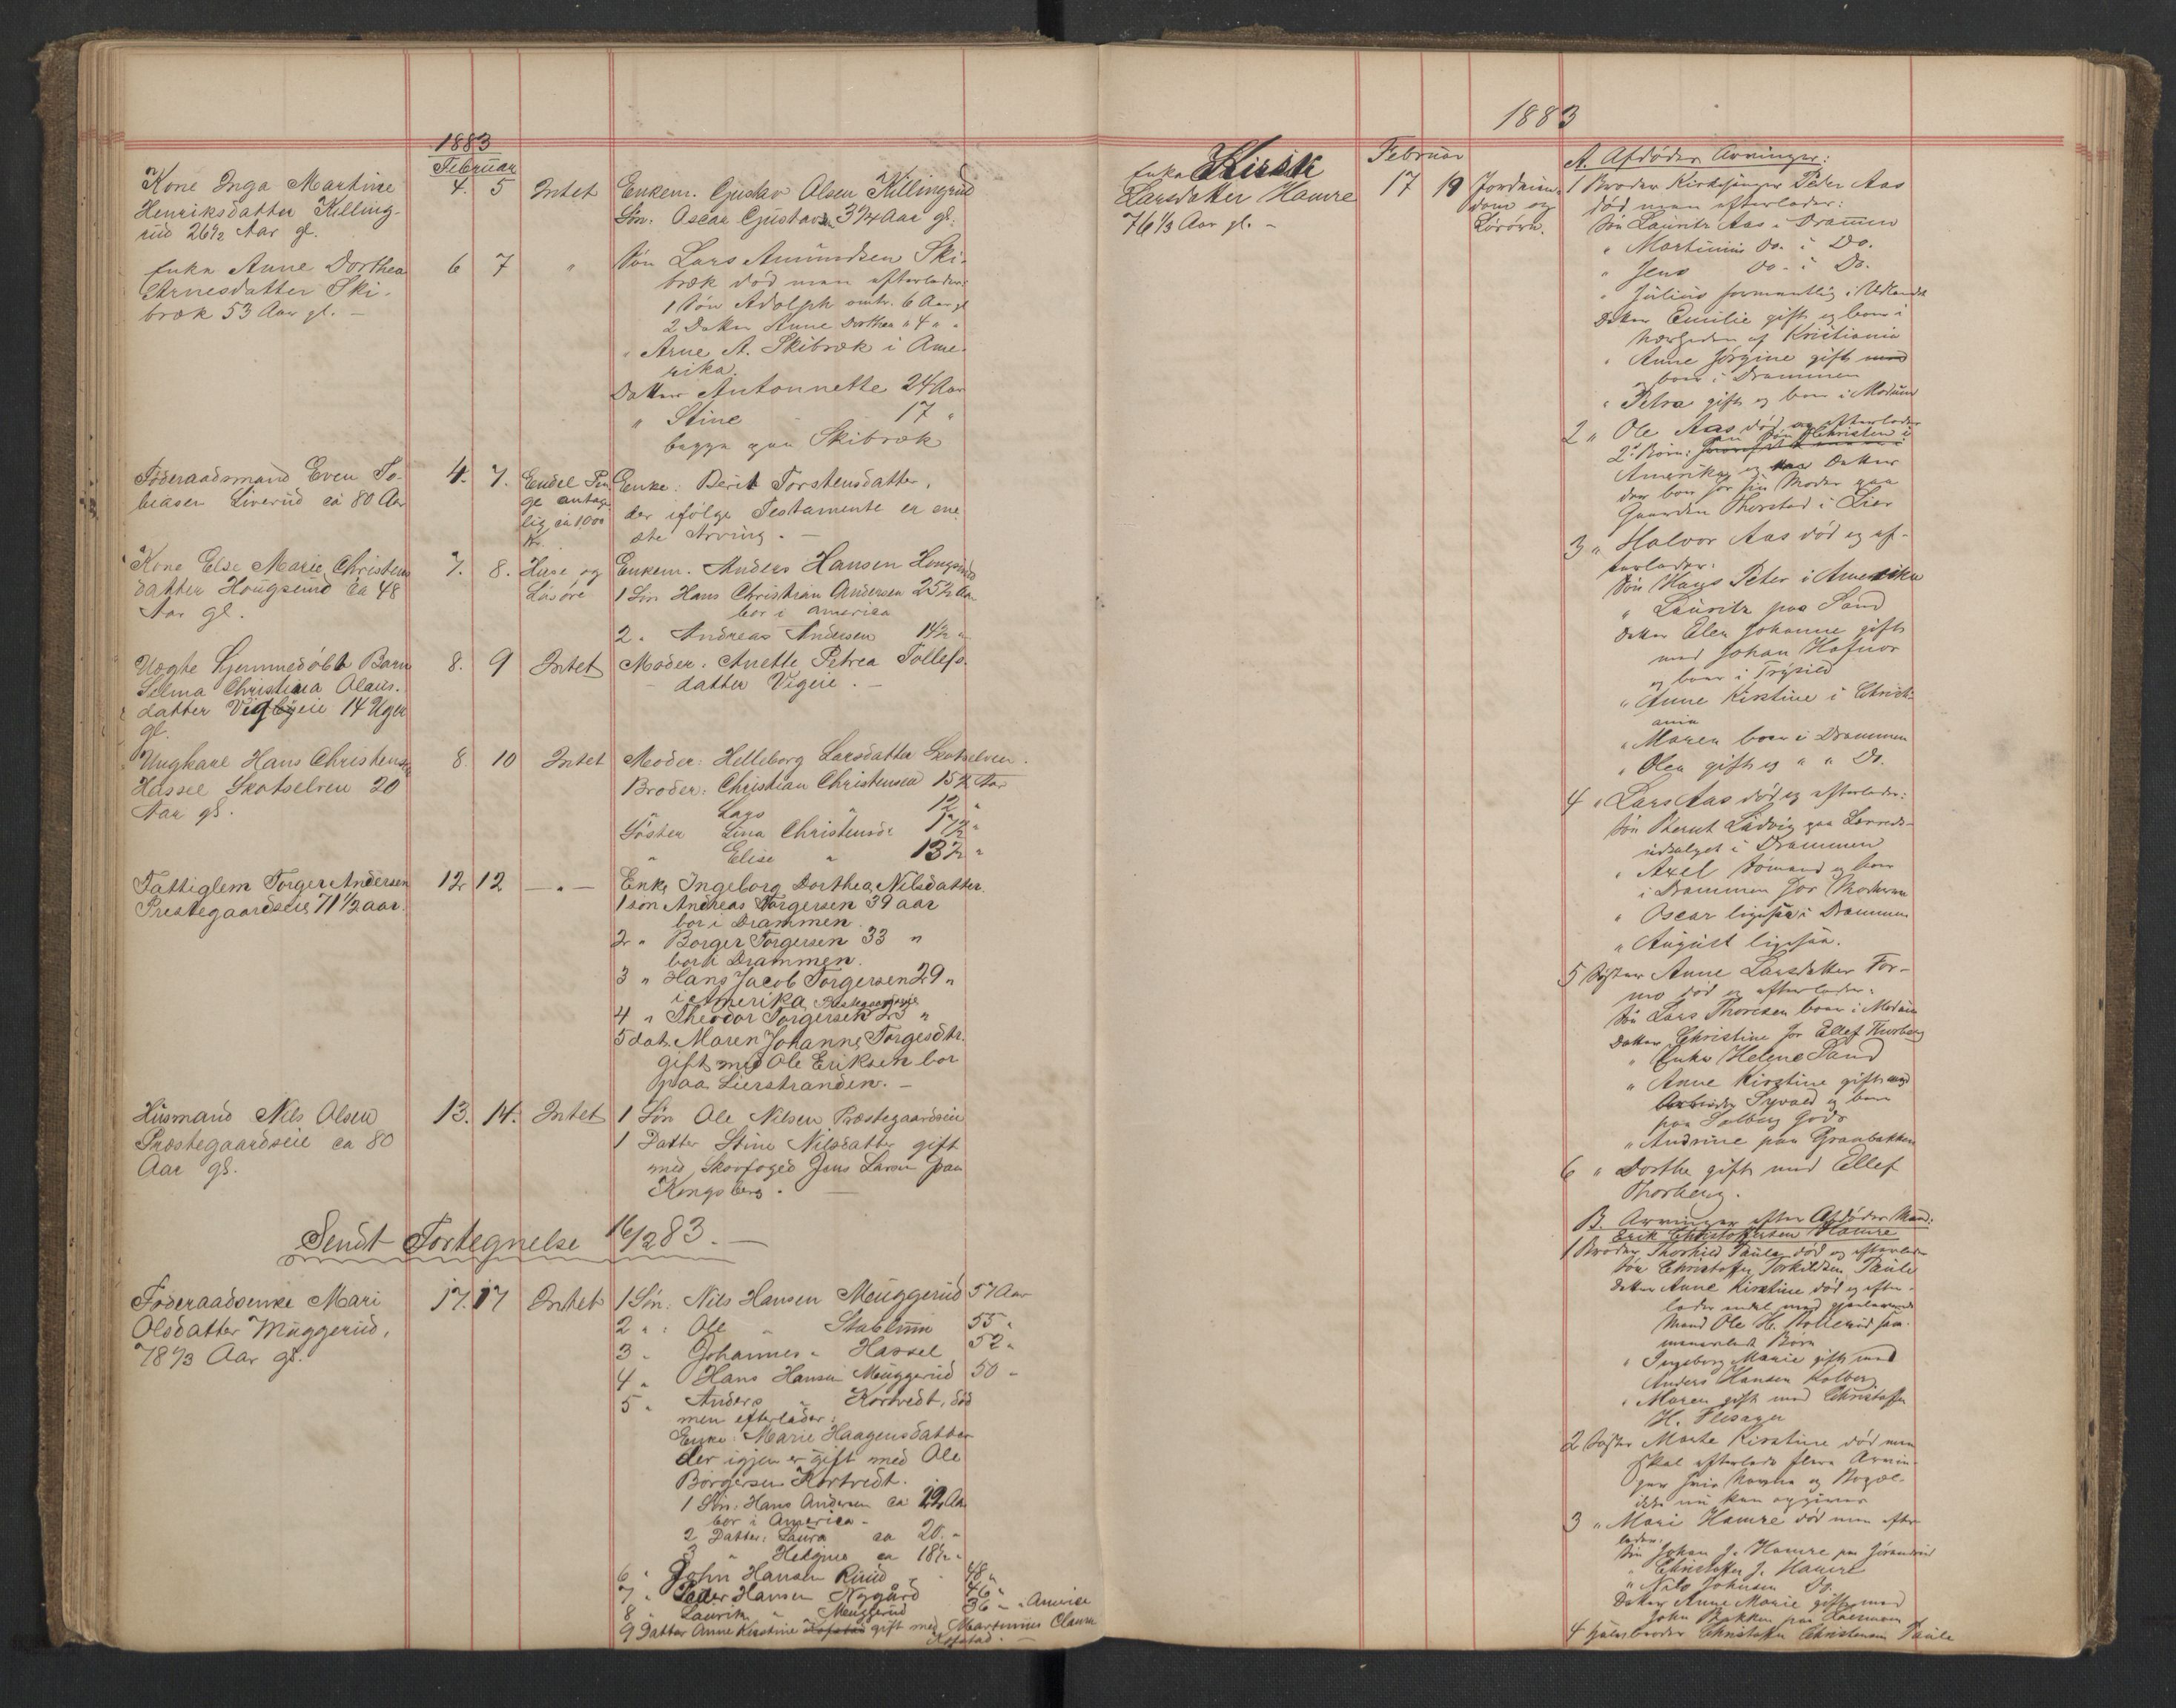 1883
Februar
Kone Inga Martine
Henriksdatter Killing-
rud 26 1/2 Aar gl.
4. 5 Intet
Enkem. Gustav Olsen Killingrud
Søn. Oscar Gustavsen 3 1/4 Aar gl.
Enke Anne Dorthea
Arnesdatter Ski-
bræk 53 Aar gl. –
6 7 "
Søn Lars Amundsen Ski-
bræk død men efterlader:
1 Søn Adolph omtr. 6 Aar gl
2 Datter Anne Dorthea " 4 " "
" Arne A. Skibræk i Ame-
rika.
Datter Antonnette 24 Aar
" Stine 17 "
begge paa Skibræk
Føderaadsmand Even To-
biasen Liverud ca 80 Aar
4. 7. Endel Pen-
ge antage-
lig ca 1000
Kr.
Enke: Berit Torstensdatter,
der ifølge Testamente er ene-
ste Arving. –
Kone Else Marie Christens
datter Hougsund ca 48
Aar gl.
7. 8. Huse og
Løsøre
Enkem. Anders Hansen Hougsund
1 Søn Hans Christian Andersen 25 1/2 Aar
bor i America
2 " Andreas Andersen 14 1/2 "
Uægte hjemmedøbt Barn
Selma Christina Olaus-
datter Vegeie 14 Uger
gl.
8. 9 Intet
Moder. Anette Petrea Tollefs-
datter Vegeie. –
Ungkarl Hans Christensen
Hassel Skotselven 20
Aar gl.
8. 10 Intet
Moder: Helleborg Larsdatter Skotselven.
Broder: Christian Christensen 15 1/2 Aar
" Lars " 12 "
Søster Lina Christensdr 17 1/2 "
" Elise " 13 1/2 "
Fattiglem Torger Andersen
Prestegaardseie 71 1/2 aar.
12 12 – " –
Enke Ingeborg Dorthea Nilsdatter.
1 søn Andreas Torgersen 39 aar
bor i Drammen.
2 " Borger Torgersen 33 "
bor i Drammen.
3 " Hans Jacob Torgersen 29 "
i Amerika
Prestegaardseie
4 " Theodor Torgersen 23 "
5 dat. Maren Johanne Torgesdtr.
gift med Ole Eriksen bor
paa Lierstranden. –
Husmand Nils Olsen
Præstegaardseie ca 80
Aar gl.
13. 14. Intet
1 Søn Ole Nilsen Præstegaardseie
1 Datter Stine Nilsdatter gift
med Skovfoged Jens Larsen paa
Kongsberg. –
Sendt Fortegnelse 16/2 83. –
Føderaadsenke Mari
Olsdatter Muggerud,
78 1/3 Aar gl.
17. 17 Intet
1 Søn: Nils Hansen Muggerud 57 Aar
2 " : Ole " Stablum 55 "
3 " Johannes " Hassel 52 "
4 " Hans Hansen Muggerud 50 "
5 " Anders " Kortvedt, død
men efterlader:
Enke: Marie Haagensdatter
der igjen er gift med Ole
Borgersen Kortvedt.
1 Søn: Hans Andersen ca 22 Aar
bor i America –
2 Datter: Laura ca 20. "
3 " Helgine ca 18 1/2 "
6 " John Hansen Ruud 48 "
7 " Peder Hansen Nygård 46 "
8 " Laurits " Muggerud 36 " America
9 Datter Anne Kirstine Hofstad gift med Martinius Olausen
Hofstad. –
1883
Februar
Enke Kirsti
Larsdatter Hamre
76 1/3 Aar gl. –
17 19 Jordeien-
dom og
Løsøre.
A. Afdødes Arvinger:
1 Broder Kirkesanger Peder Aas
død men efterlader:
Søn Lauritz Aas i Drammen
" Martinius Do. i Do.
" Jens Do. i Do.
" Julius formentlig i Udlandet
Datter Emilie gift og boer i
Nærheden af Kristiania
" Anne Jørgine gift med
og boer i Drammen
" Petra gift og boer i Modum
2 " Ole Aas død og efterlader
2 Børn: en Søn Christen i
Amerika og Datter
der bor hos sin Moder paa
Gaarden Thorstad i Lier
3 " Halvor Aas død og ef-
terlader:
Søn Hans Peter i Amerika
" Lauritz paa Sand
Datter Elen Johanne gift
med Johan Hafnor
og boer i Trysild
" Anne Kirstine i Christi-
ania
" Maren boer i Drammen
" Olea gift og " " Do.
4 " Lars Aas død og efterlader:
Søn Bernt Ludvig paa Lærreds-
udsalget i Drammen
" Axel Sømand og boer
i Drammen hos Moderen
" Oscar ligesaa i Drammen
" August ligesaa.
5 Søster Anne Larsdatter For-
mo død og efterlader:
Søn Lars Thoresen boer i Modum
Datter Christine hos Ellef Thorberg
" Enke Helene Sand
" Anne Kirstine gift med
Arbeider Syvald og boer
paa Solberg Gods
" Andrine paa Granbakken
6 " Dorthe gift med Ellef
Thorberg.
B. Arvinger efter Afdødes Mand:
Erik Christoffersen Hamre
1 Broder Thorkild Paule død og efterlader
Søn Christoffer Torkildsen Paule
Datter Anne Kirstine død og efter-
lader endel med gjenlevende
Mand Ole H. sam-
menavlede Børn
" Ingeborg Marie gift med
Anders Hansen Kolberg
" Maren gift med Christoffer
H. Flesager
2 Søster Marte Kirstine død men
skal efterlade flere Arvin-
ger hvis Navne og Bopæl
ikke nu kan opgives
3 " Mari Hamre død men efter-
lader:
Søn Johan J. Hamre paa
" Christoffer J. Hamre
" Nils Johnsen Do.
Datter Anne Marie gift med
John Bakken paa
4 Halvbroder Christoffer Christensen Paule